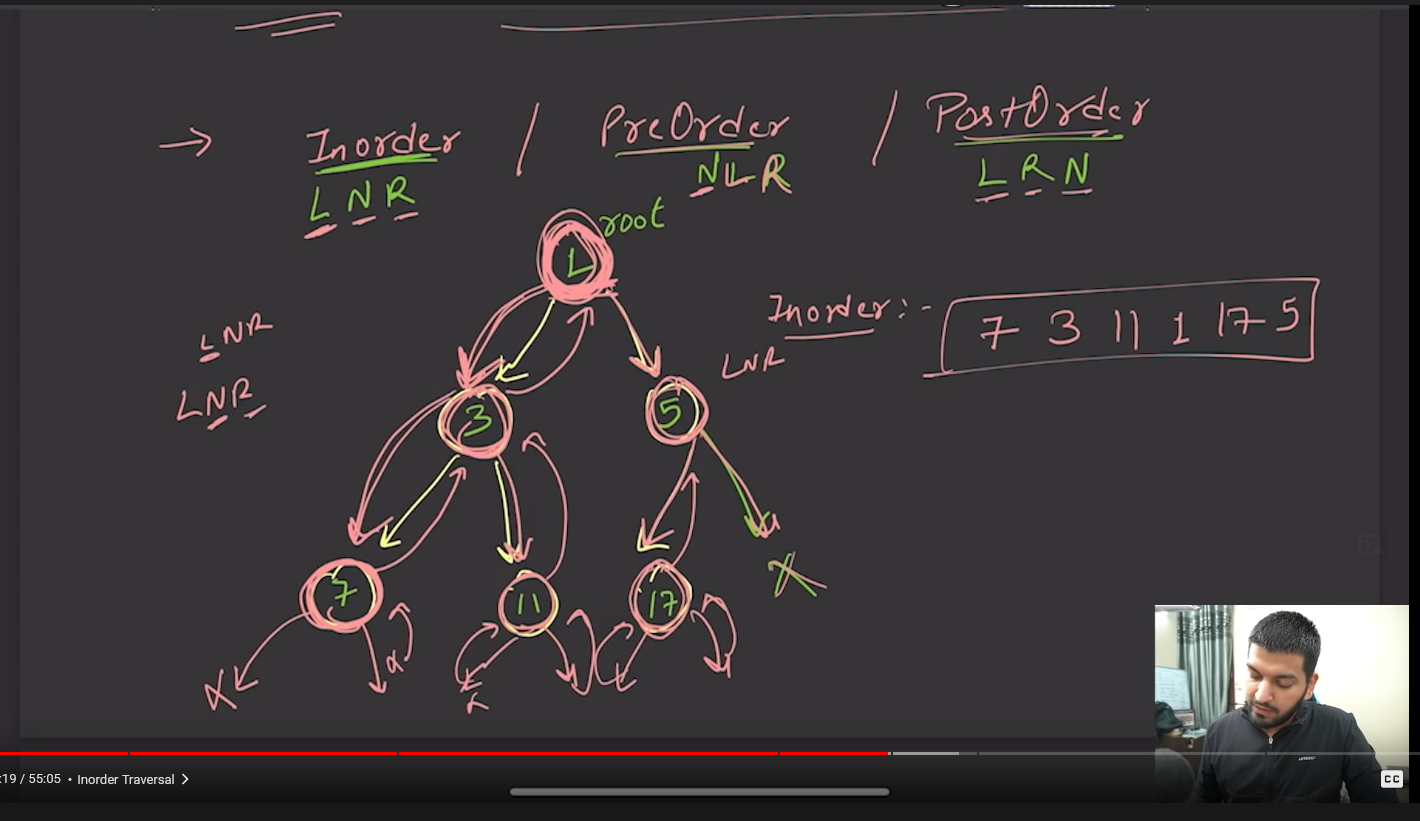 → Inorder / PreOrder / PostOrder
LNR NLR LRN
root
1
Inorder:- 7 3 11 1 17 5
LNR
LNR
LNR
3 5
7 11 17
X
:19 / 55:05 • Inorder Traversal >
CC